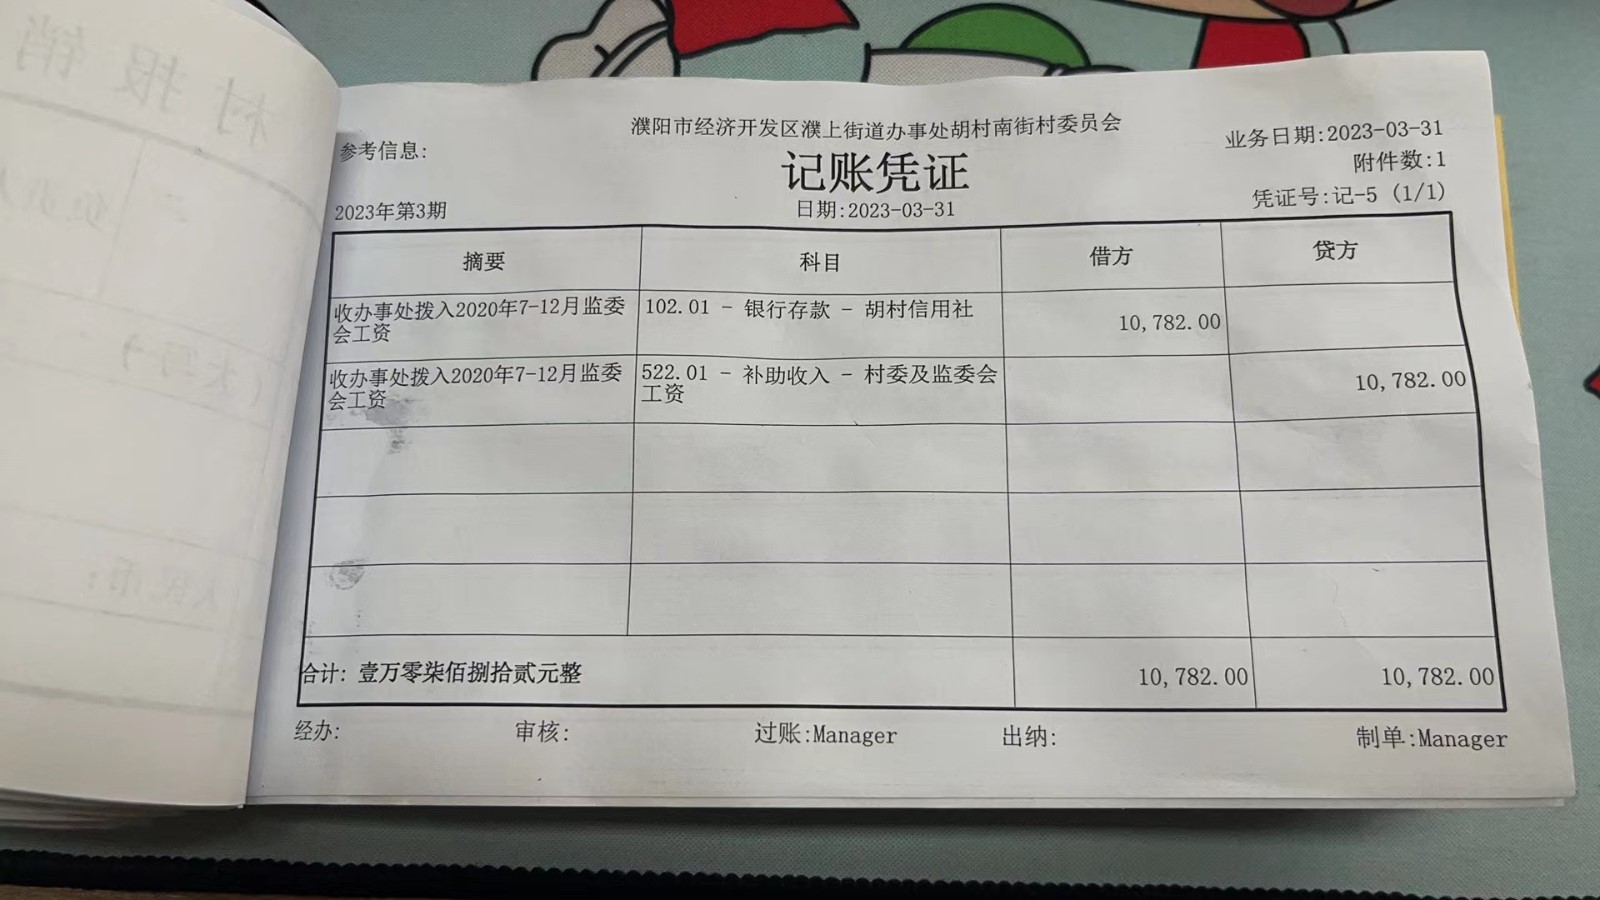 村报销
濮阳市经济开发区濮上街道办事处胡村南街村委员会
参考信息:
业务日期:2023-03-31
记账凭证
附件数:1
2023年第3期
日期:2023-03-31
凭证号:记-5 (1/1)
摘要 科目 借方 贷方
收办事处拨入2020年7-12月监委
会工资
102.01 - 银行存款 - 胡村信用社
10,782.00
收办事处拨入2020年7-12月监委
会工资
522.01 - 补助收入 - 村委及监委会
工资
10,782.00
合计: 壹万零柒佰捌拾贰元整 10,782.00 10,782.00
经办: 审核: 过账:Manager 出纳: 制单:Manager